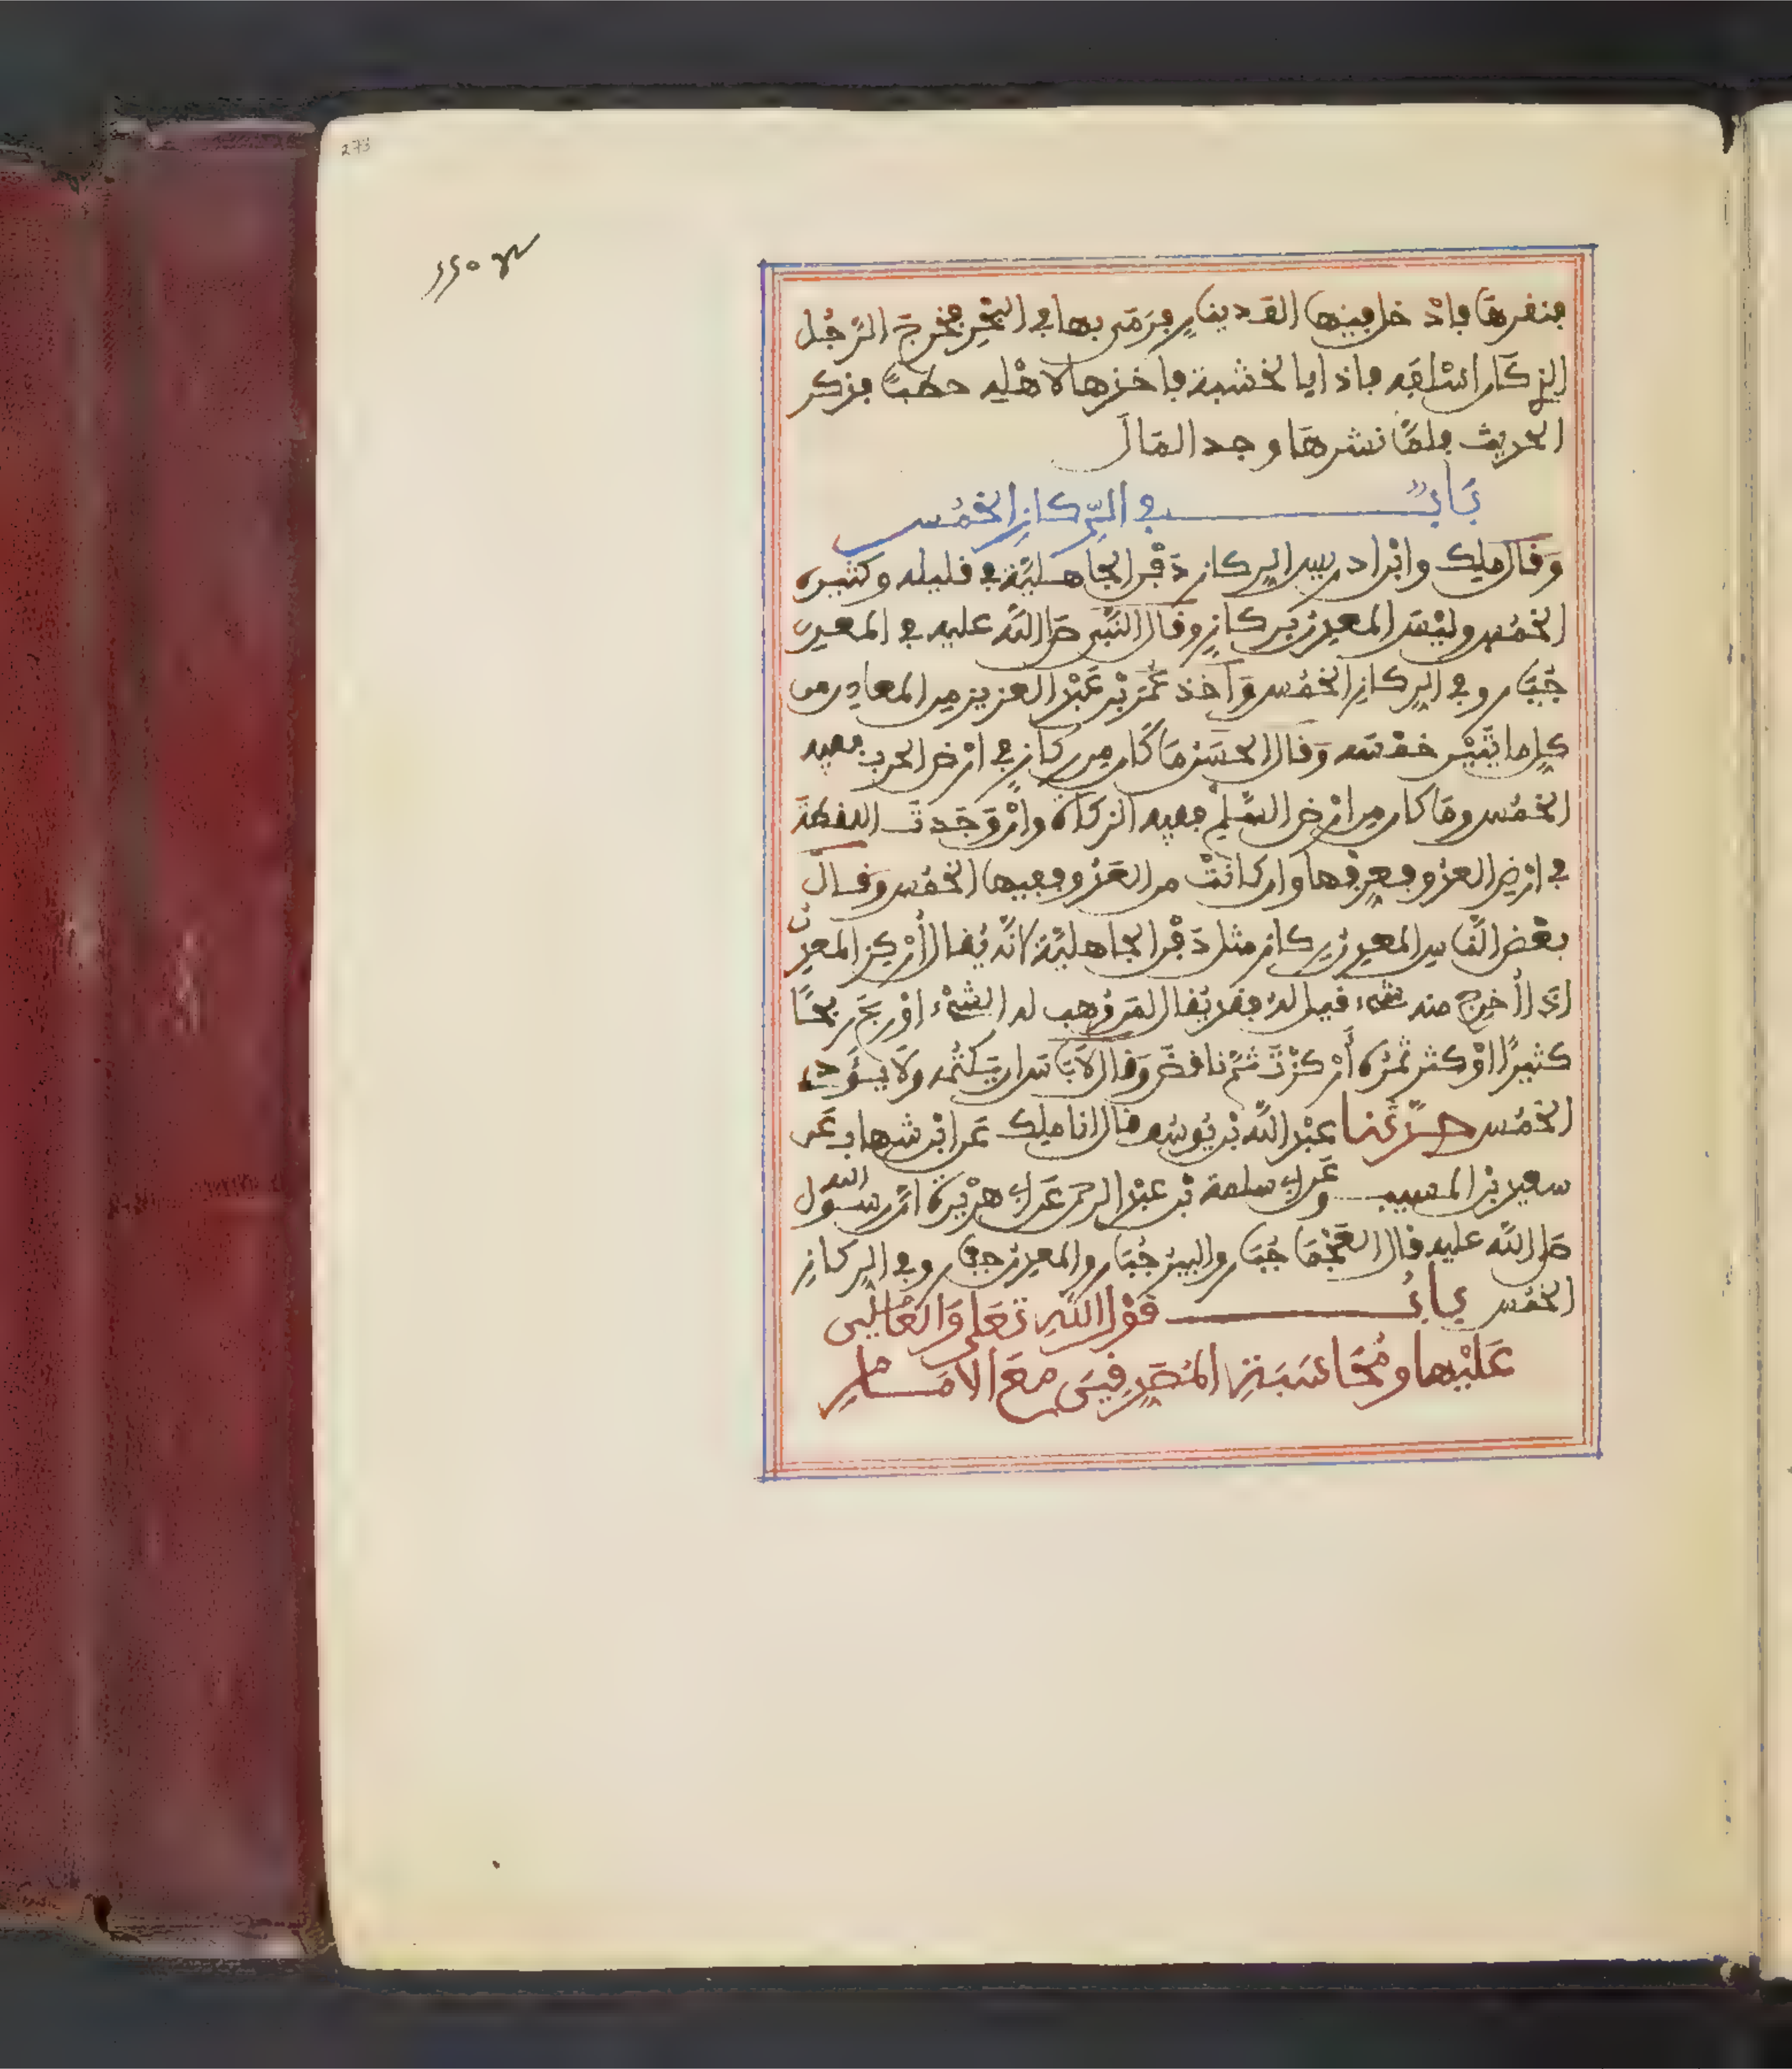 273
فنقرها فادخل فيها الف دينار فرمى بها في البحر فخرج الرجل
الذي كان اسلفه فاذا بالخشبة فاخذها لاهله حطبا فذكر
الحديث فلما نشرها وجد المال
باب في الركاز الخمس
وقال ملك وابن ادريس الركاز دفن الجاهلية في قليله وكثيره
الخمس وليس المعدن بركاز وقال النبي صلى الله عليه في المعدن
جبار وفي الركاز الخمس واخذ عمر بن عبد العزيز من المعادن من
كل مائتين خمسة وقال الحسن ما كان من ركاز في ارض الحرب ففيه
الخمس وما كان من ارض السلم ففيه الزكاة وان وجدت اللقطة
في ارض العدو فعرفها وان كانت من العدو ففيها الخمس وقال
بعض الناس المعدن ركاز مثل دفن الجاهلية لانه يقال اركز المعدن
اذا اخرج منه شيء قيل له فقد يقال لمن وهب له الشيء او ربح ربحا
كثيرا او كثر ثمره اركزت ثم ناقض وقال لا باس ان يكتمه ولا يؤدي
الخمس حدثنا عبد الله بن يوسف قال انا ملك عن ابن شهاب عن
سعيد بن المسيب وعن ابي سلمة بن عبد الرحمن عن ابي هريرة ان رسول الله
صلى الله عليه قال العجما جبار والبير جبار والمعدن جبار وفي الركاز
الخمس باب قول الله تعلى والعاملين
عليها ومحاسبة المصدقين مع الامام